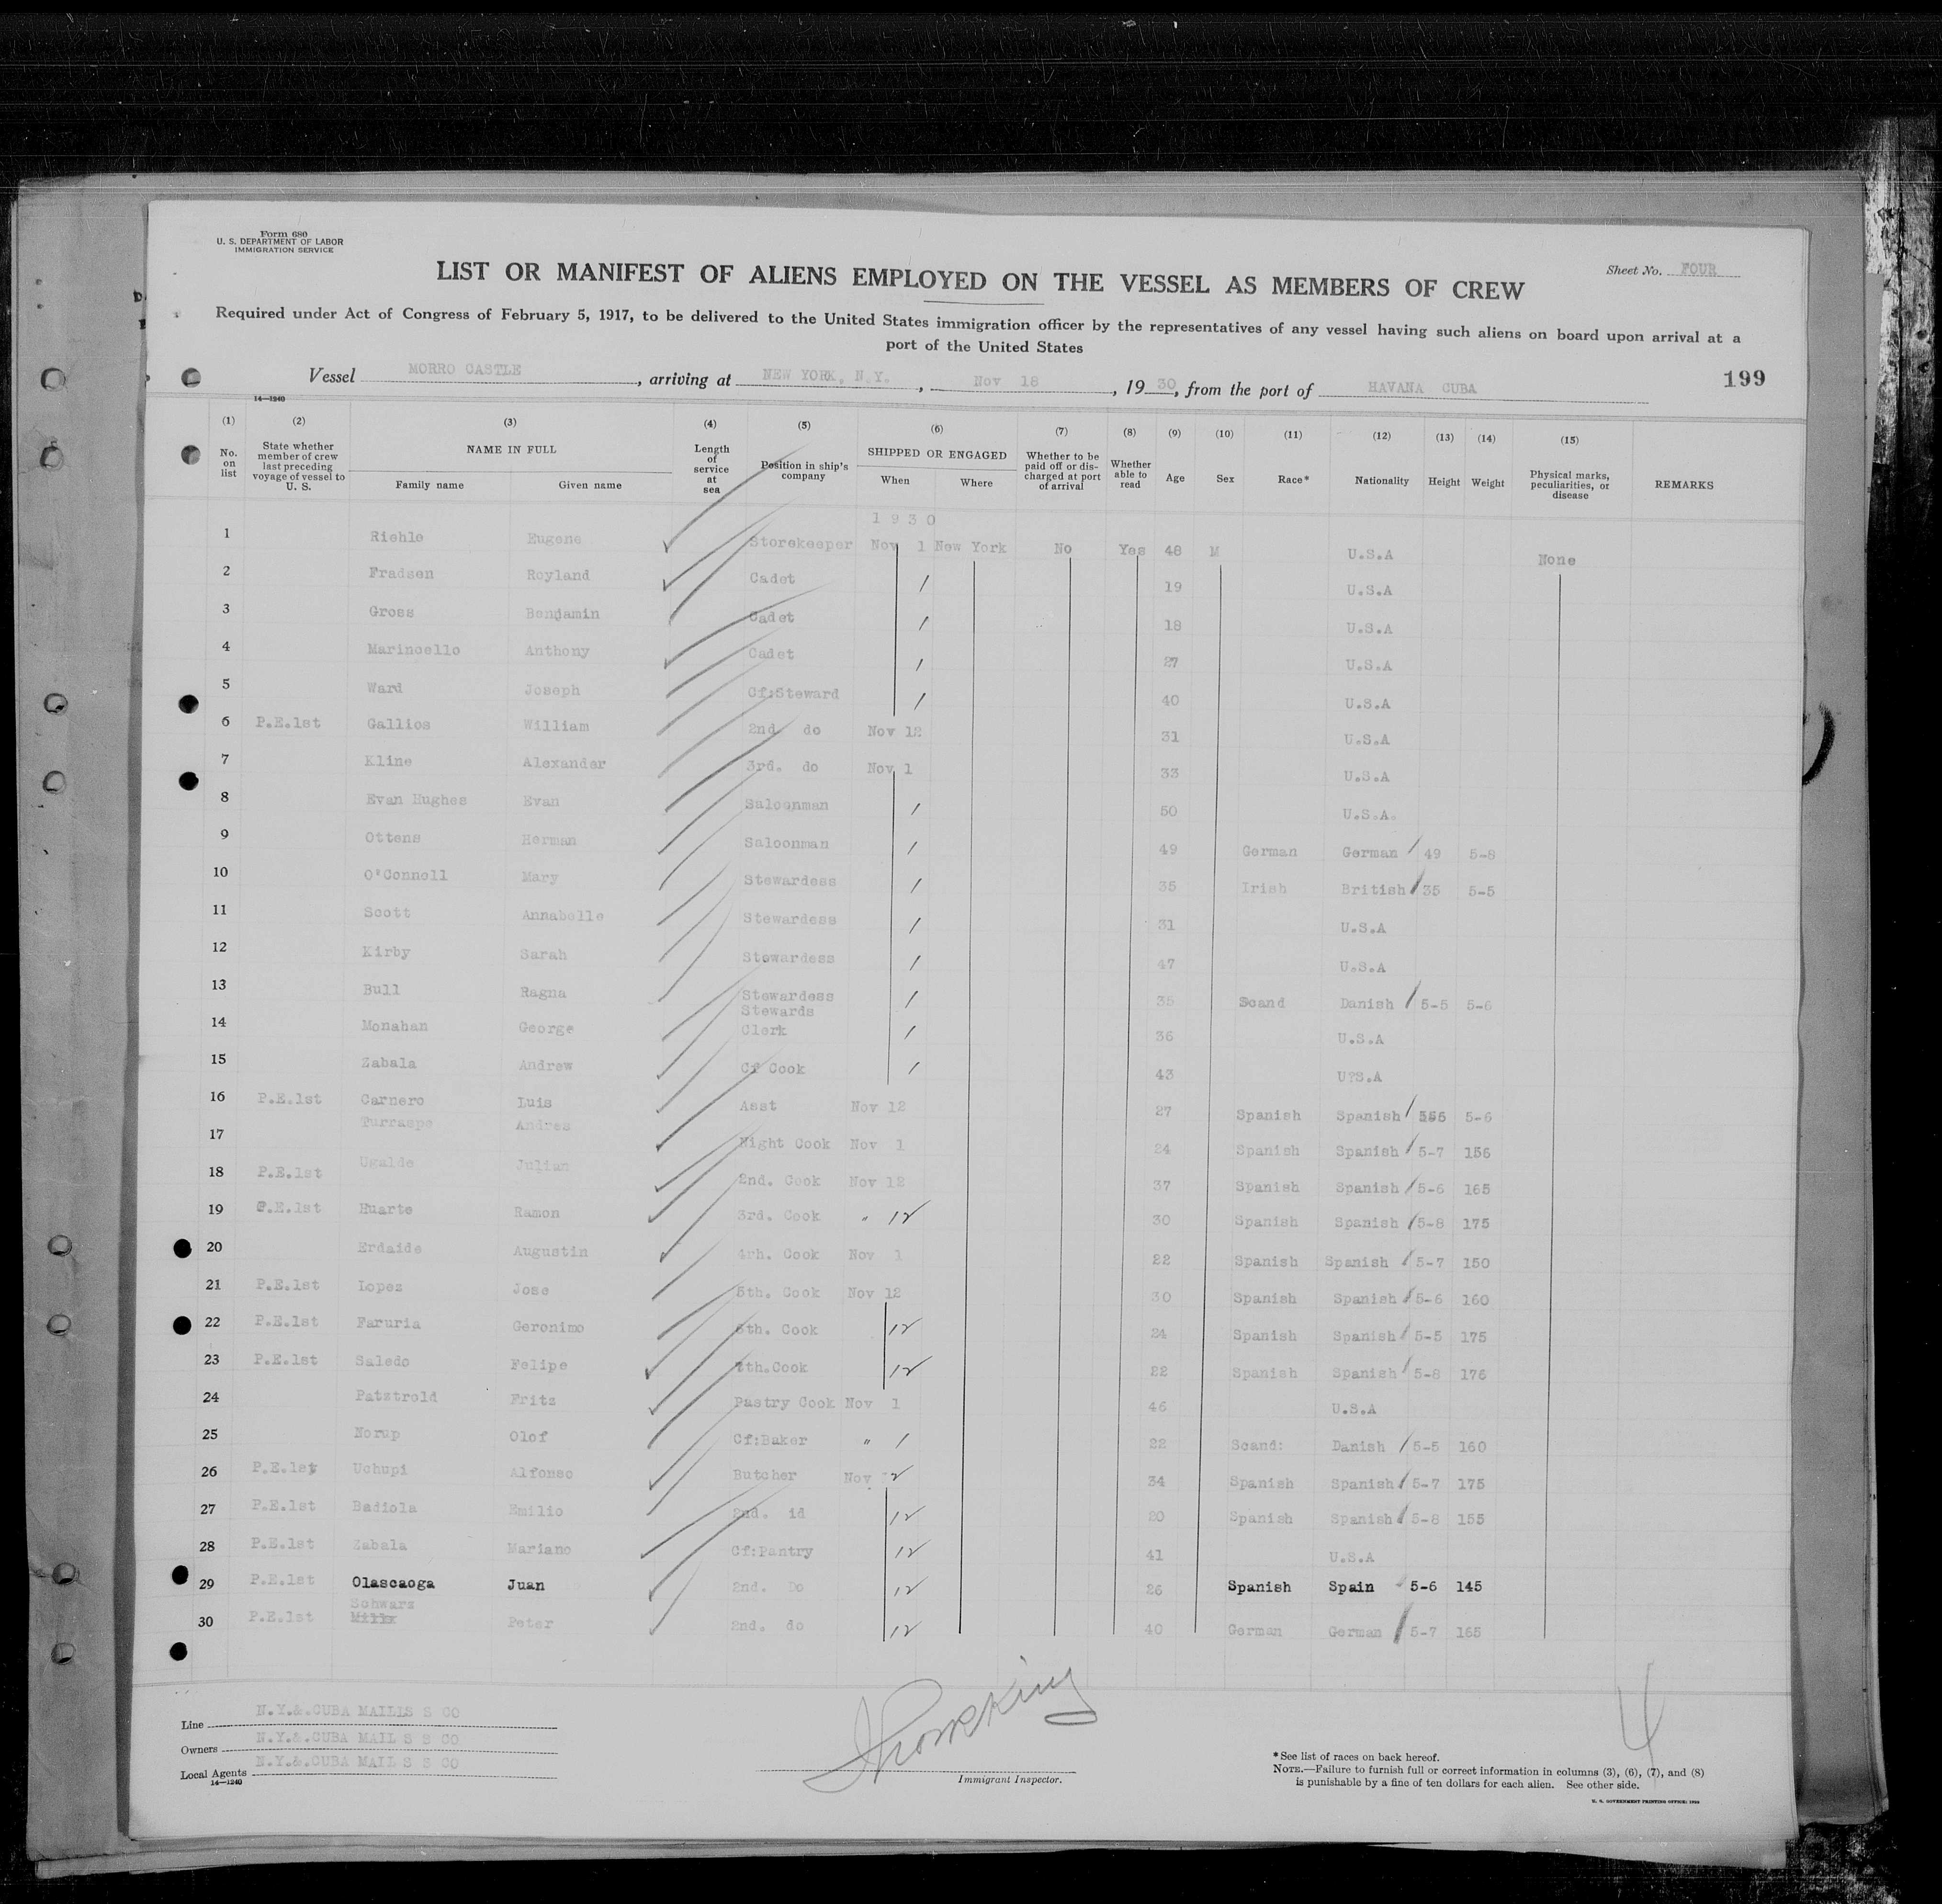 Form 680
U. S. DEPARTMENT OF LABOR
IMMIGRATION SERVICE
Sheet No. FOUR
LIST OR MANIFEST OF ALIENS EMPLOYED ON THE VESSEL AS MEMBERS OF CREW
Required under Act of Congress of February 5, 1917, to be delivered to the United States immigration officer by the representatives of any vessel having such aliens on board upon arrival at a
port of the United States
Vessel MORRO CASTLE, arriving at NEW YORK, N.Y., Nov 18, 1930, from the port of HAVANA CUBA
199
14—1240
(1) (2) (3) (4) (5) (6) (7) (8) (9) (10) (11) (12) (13) (14) (15)
No. on list
State whether member of crew last preceding voyage of vessel to U. S.
NAME IN FULL
Family name Given name
Length of service at sea
Position in ship's company
SHIPPED OR ENGAGED
When Where
Whether to be paid off or discharged at port of arrival
Whether able to read
Age Sex Race* Nationality Height Weight
Physical marks, peculiarities, or disease
REMARKS
1930
1 Riehle Eugene Storekeeper Nov 1 New York No Yes 48 M U.S.A None
2 Fradsen Royland Cadet 1 19 U.S.A
3 Gross Benjamin Cadet 1 18 U.S.A
4 Marincello Anthony Cadet 1 27 U.S.A
5 Ward Joseph Cf:Steward 1 40 U.S.A
6 P.E.1st Gallios William 2nd do Nov 12 31 U.S.A
7 Kline Alexander 3rd. do Nov 1 33 U.S.A
8 Evan Hughes Evan Saloonman 1 50 U.S.A.
9 Ottens Herman Saloonman 1 49 German German 49 5-8
10 O'Connell Mary Stewardess 1 35 Irish British 35 5-5
11 Scott Annabelle Stewardess 1 31 U.S.A
12 Kirby Sarah Stewardess 1 47 U.S.A
13 Bull Ragna Stewardess 1 35 Scand Danish 5-5 5-6
14 Monahan George Stewards Clerk 1 36 U.S.A
15 Zabala Andrew Cf Cook 1 43 U?S.A
16 P.E.1st Carnero Luis Asst Nov 12 27 Spanish Spanish 5-6
17 Turraspe Andres Night Cook Nov 1 24 Spanish Spanish 5-7 156
18 P.E.1st Ugalde Julian 2nd. Cook Nov 12 37 Spanish Spanish 5-6 165
19 P.E.1st Huarte Ramon 3rd. Cook " 12 30 Spanish Spanish 5-8 175
20 Erdaide Augustin 4rh. Cook Nov 1 22 Spanish Spanish 5-7 150
21 P.E.1st Lopez Jose 5th. Cook Nov 12 30 Spanish Spanish 5-6 160
22 P.E.1st Faruria Geronimo 6th. Cook 12 24 Spanish Spanish 5-5 175
23 P.E.1st Saledo Felipe 7th.Cook 12 22 Spanish Spanish 5-8 176
24 Patztrold Fritz Pastry Cook Nov 1 46 U.S.A
25 Norup Olof Cf:Baker " 1 22 Scand: Danish 5-5 160
26 P.E.1st Uchupi Alfonso Butcher Nov 12 34 Spanish Spanish 5-7 175
27 P.E.1st Badiola Emilio 2nd. id 12 20 Spanish Spanish 5-8 155
28 P.E.1st Zabala Mariano Cf:Pantry 12 41 U.S.A
29 P.E.1st Olascaoga Juan 2nd. Do 12 26 Spanish Spain 5-6 145
30 P.E.1st Schwarz Peter 2nd. do 12 40 German German 5-7 165
Line N.Y.&.CUBA MAILLS S CO
Owners N.Y.&.CUBA MAIL S S CO
Local Agents N.Y.&.CUBA MAIL S S CO
14—1240
Immigrant Inspector.
4
*See list of races on back hereof.
NOTE.—Failure to furnish full or correct information in columns (3), (6), (7), and (8)
is punishable by a fine of ten dollars for each alien. See other side.
U. S. GOVERNMENT PRINTING OFFICE: 1929